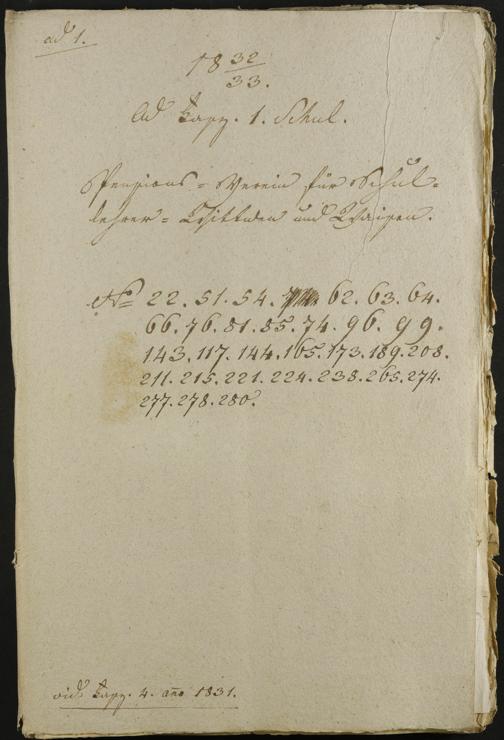 ad 1.
18 32/33.
Ad Fapz. 1. Schul.
Pensions-Verein für Schul-
lehrer-Wittwen und Waisen.
No 22. 51. 54. 62. 63. 64.
66. 76. 81. 85. 74. 96. 99.
143. 117. 144. 165. 173. 189. 208.
211. 215. 221. 224. 238. 265. 274.
277. 278. 280.
vid. Fapz. 4. año 1831.